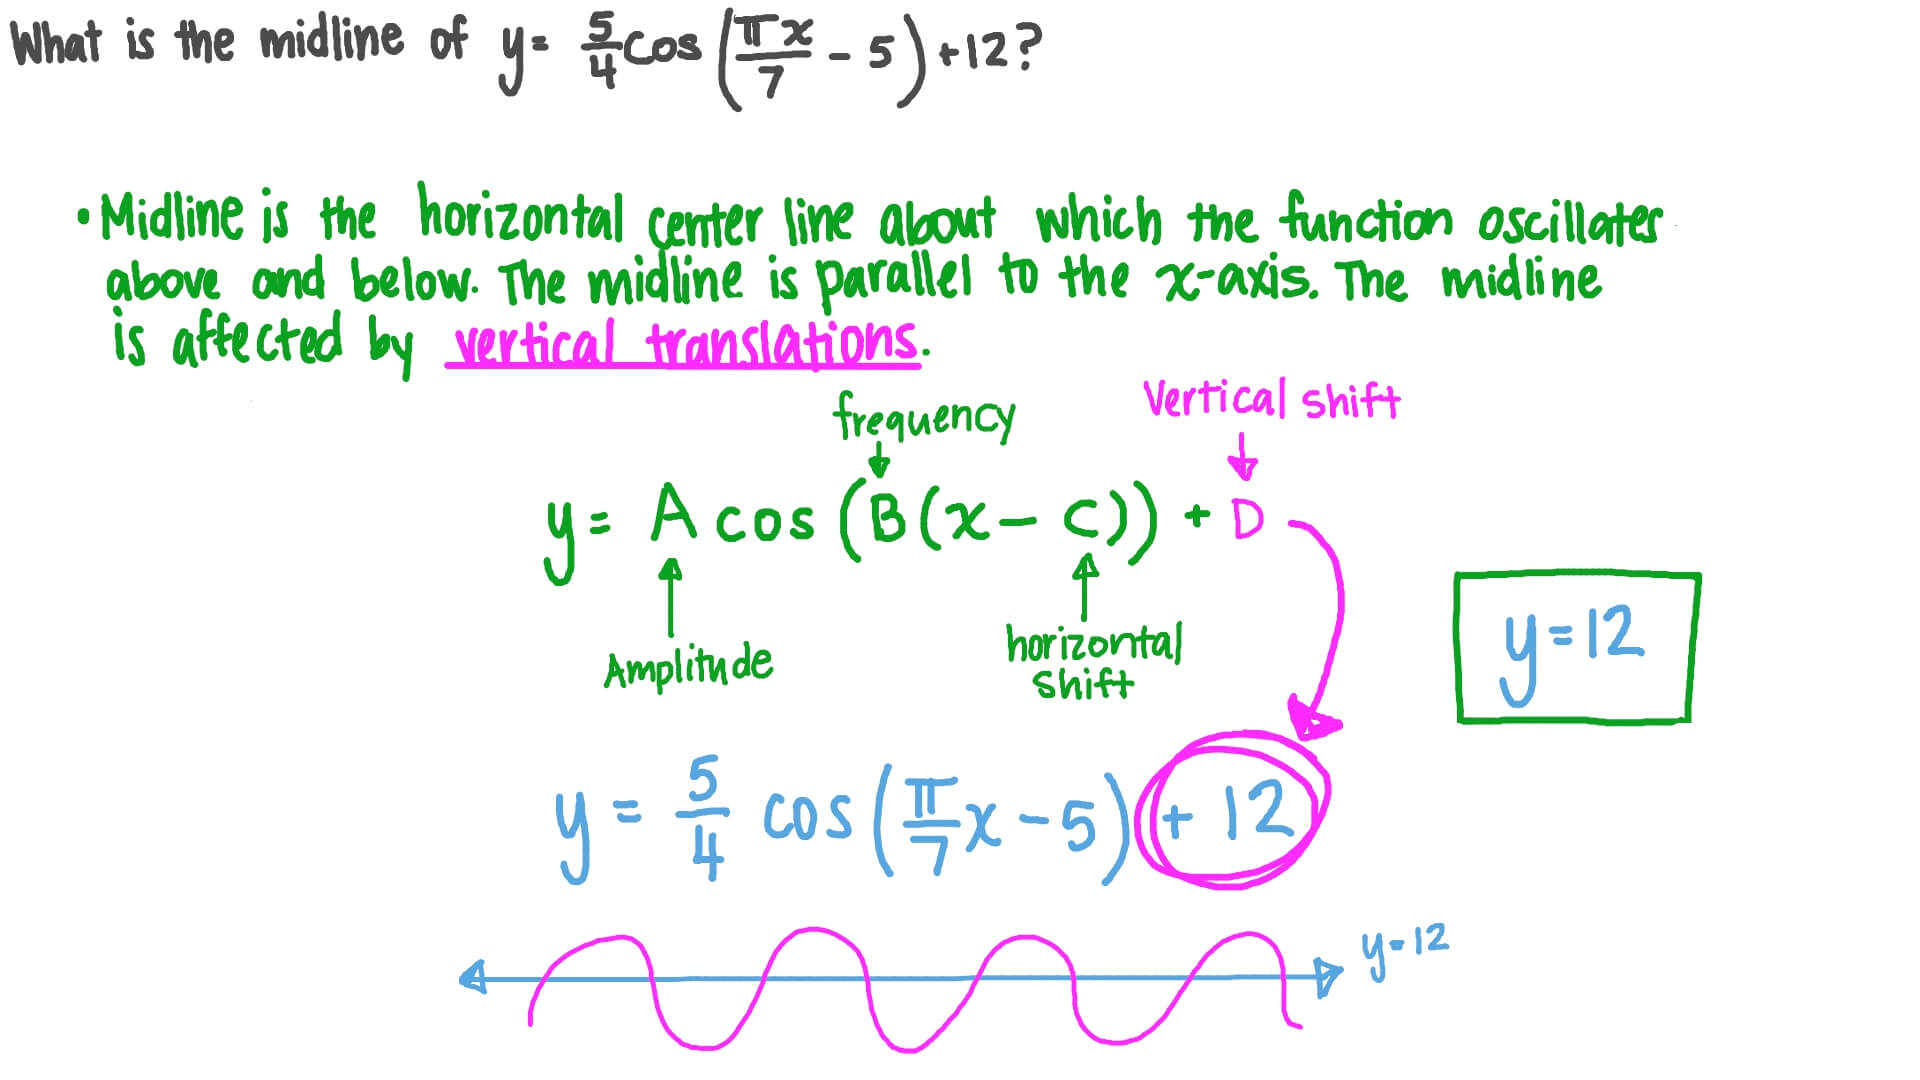 What is the midline of y= 5/4 cos(πx/7 - 5) +12?
• Midline is the horizontal center line about which the function oscillates
above and below. The midline is parallel to the x-axis. The midline
is affected by vertical translations.
frequency
Vertical shift
y= A cos (B(x - C)) + D
Amplitude
horizontal
shift
y=12
y = 5/4 cos(π/7 x - 5) + 12
y=12